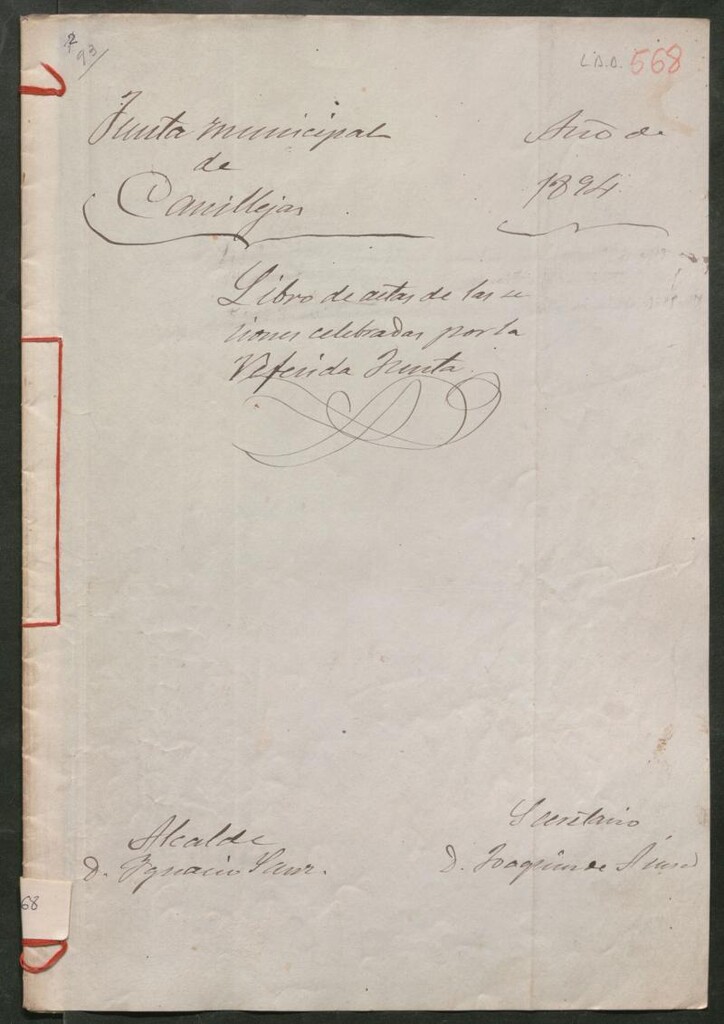 93/
L.A.A. 568
Junta municipal
de
Canillejas
Año de
1894.
Libro de actas de las se
siones celebradas por la
referida Junta.
Alcalde
D. Ignacio Sanz.
Secretario
D. Joaquin de
68